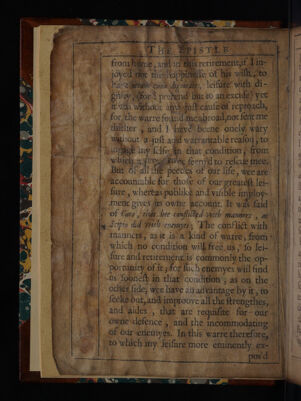 THE EPISTLE
from home, and in this retirement, if I in-
joyed not the happinesse of his wish, to
have leisure with di-
gnity, (for I pretend but to an excuse) yet
it was without any just cause of reproch,
for the warre found me abroad, not sent me
thither, and I have beene onely wary
without a just and warrantable reason, to
ingage my selfe in that condition, from
which a seem'd to rescue mee.
But of all the peeces of our life, wee are
accountable for those of our greatest lei-
sure, whereas publike and visible imploy-
ment gives its owne account. It was said
of Cato, that hee conflicted with manners, as
Scipio did with enemyes; The conflict with
manners, as it is a kind of warre, from
which no condition will free us, so lei-
sure and retirement is commonly the op-
portunity of it, for such enemyes will find
us soonest in that condition; as on the
other side, wee have an advantage by it, to
seeke out, and improove all the strengthes,
and aides, that are requisite for our
owne defence, and the incommodating
of our enemyes. In this warre therefore,
to which my leisure more eminently ex-
pos'd